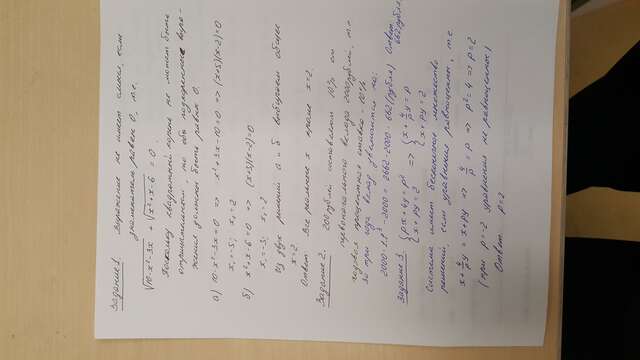 Задание 1. Выражение не имеет смысл, если
знаменатель равен 0, т.е.
√10-x²-3x + √x²+x-6 = 0.
Поскольку квадратный корень не может быть
отрицательным, то оба подкоренных выра-
жения должны быть равны 0.
а) 10-x²-3x=0 => x²+3x-10=0 => (x+5)(x-2)=0
x₁=-5; x₂=2
б) x²+x-6=0 => (x+3)(x-2)=0
x₁=-3; x₂=2
Из двух решений а и б выбираем общее
x=2.
Ответ. Все x кроме x=2.
Задание 2. 200 рублей составляют 10% от
первоначального вклада 2000 рублей, т.е.
годовая процентная ставка = 10%
За три года вклад увеличится на:
2000·1,1³-2000 = 2662-2000 = 662 (рубля) Ответ. 662 рубля.
Задание 3. {px+4y=p² => {x+4/p y=p
{x+py=2 {x+py=2
Система имеет бесконечное множество
решений, если уравнения равнозначны, т.е.
x+4/p y = x+py => 4/p = p => p²=4 => p=2
(при p=-2 уравнения не равнозначные)
Ответ. p=2